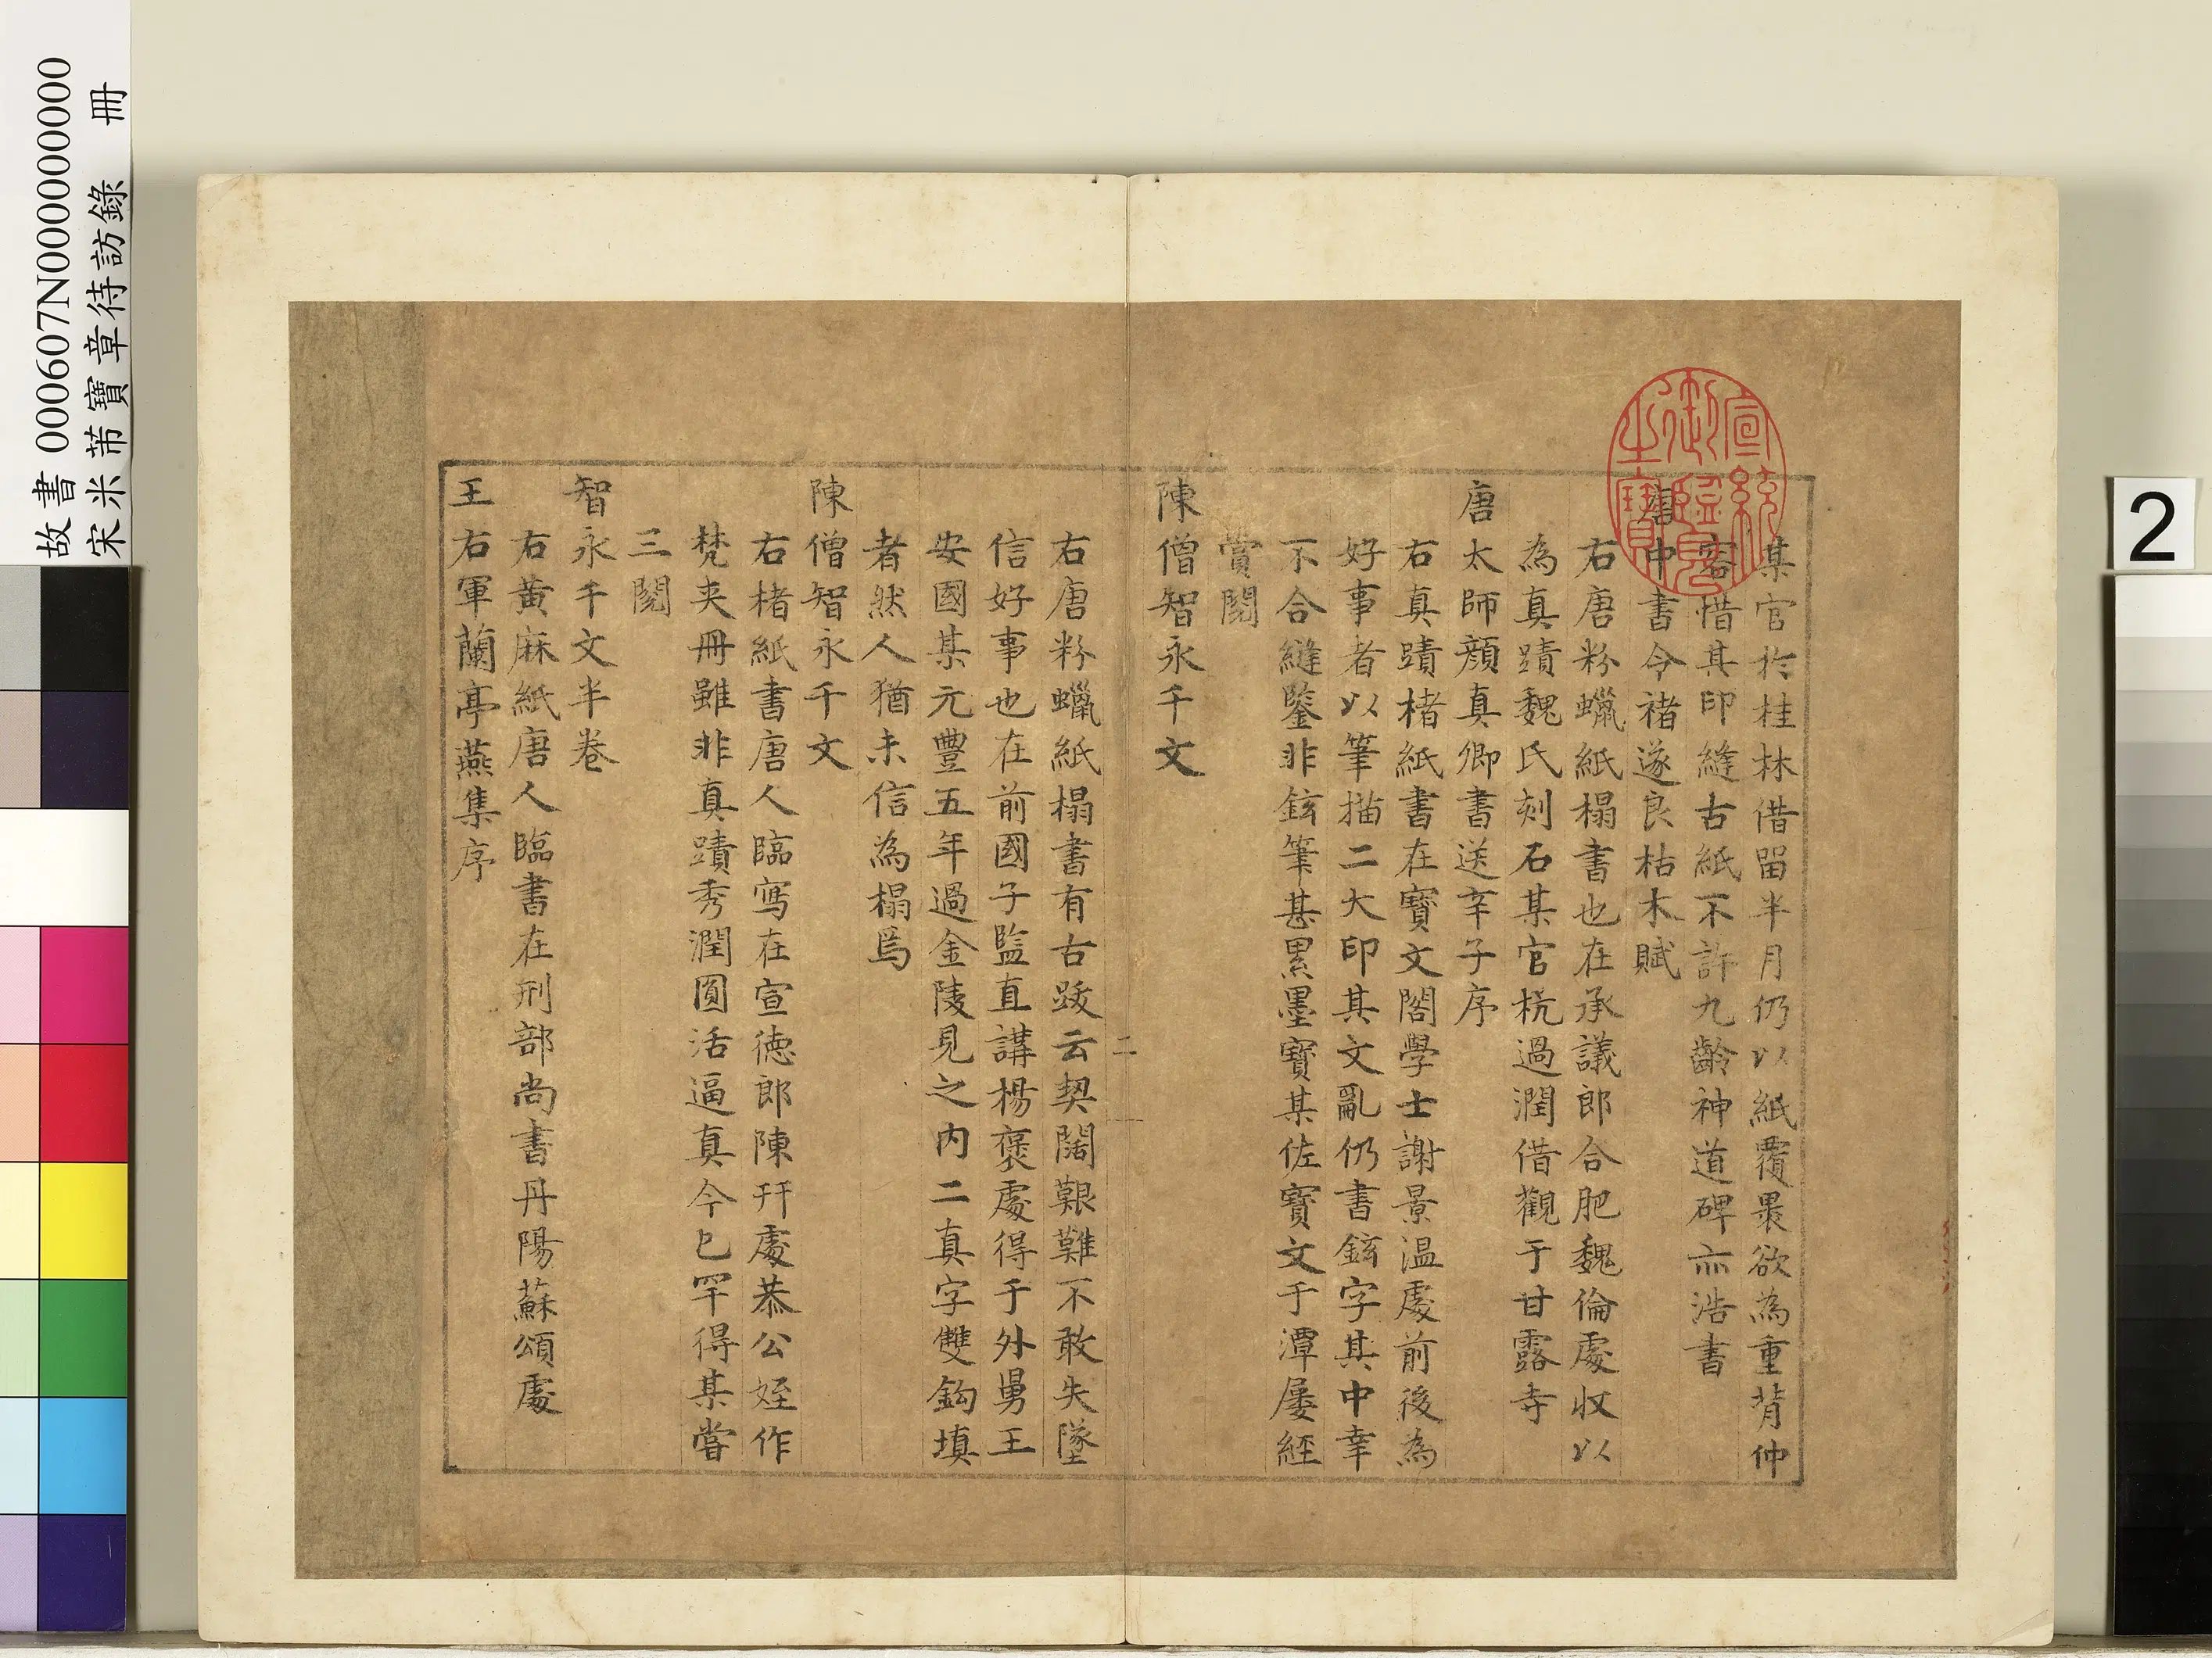 某官於桂林借留半月仍以紙覆褁欲為重背仲
容惜其印縫古紙不許九齡神道碑亦浩書
唐中書令褚遂良枯木賦
右唐粉蠟紙榻書也在承議郎合肥魏倫處収以
為真蹟魏氏刻石某官杭過潤借觀于甘露寺
唐太師顏真卿書送辛子序
右真蹟楮紙書在寶文閣學士謝景温處前後為
好事者以筆描二大印其文亂仍書鉉字其中幸
不合縫鑒非鉉筆甚累墨寶某佐寶文于潭屢經
賞閱
陳僧智永千文
二
右唐粉蠟紙榻書有古跋云契闊艱難不敢失墜
信好事也在前國子監直講楊褒處得于外男王
安國某元豐五年過金陵見之内二真字雙鈎填
者然人猶未信為榻焉
陳僧智永千文
右楮紙書唐人臨寫在宣德郎陳幵處恭公姪作
梵夾冊雖非真蹟秀潤圓活逼真今已罕得某嘗
三閱
智永千文半卷
右黃麻紙唐人臨書在刑部尚書丹陽蘇頌處
王右軍蘭亭燕集序
宣統御覽之寶
故書 000607N000000000
宋米芾寶章待訪錄 冊
2